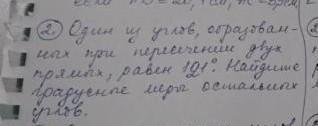 если
② Один из углов, образован-
ных при пересечении двух
прямых, равен 121°. Найдите
градусные меры остальных
углов.